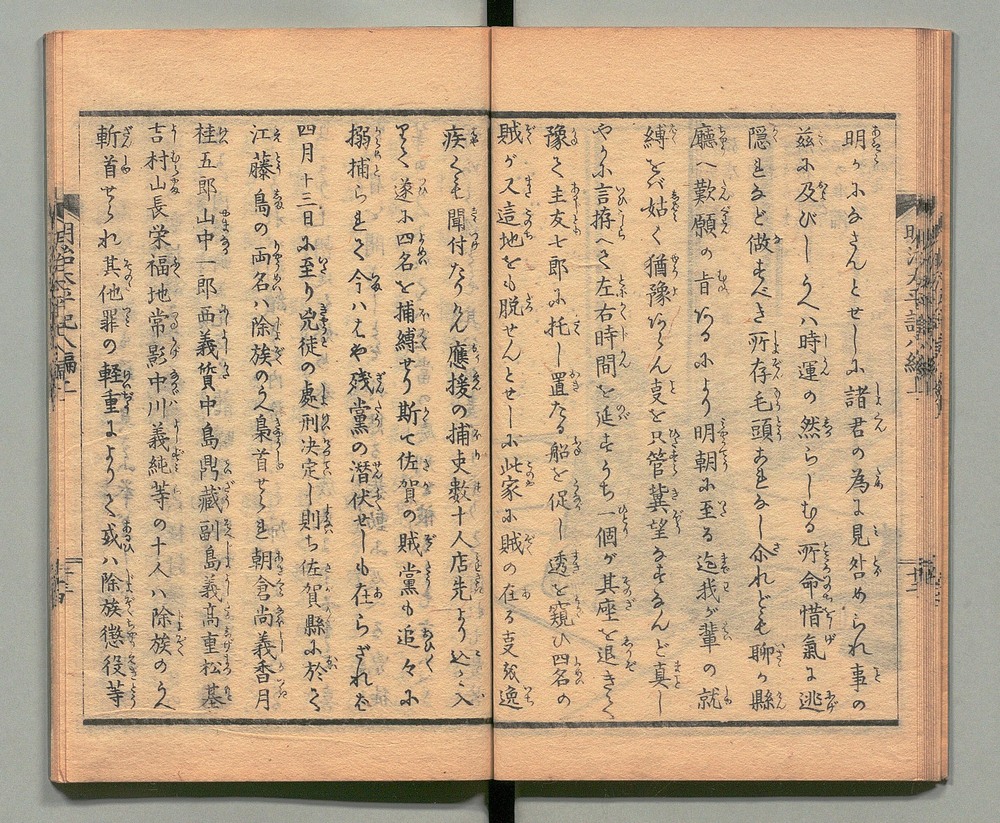 明かになさんとせしに諸君の為に見咎められ事の
茲に及びしうへハ時運の然らしむる所命惜氣に逃
隠れなど做すべき所存毛頭あれなし尒れども聊か縣
廳へ歎願の旨あるにより明朝に至る迄我が輩の就
縛をバ姑く猶豫あらん支を只管冀望なすなんど真し
やかに言拵へて左右時間を延すうち一個が其座を退きて
豫て主友七郎に托し置たる船を促し透を窺ひ四名の
賊が又這地をも脱せんとせしに此家に賊の在る支を逸
疾くも聞付たりけん應援の捕吏数十人店先より込入
りて遂に四名を捕縛せり斯て佐賀の賊黨も追々に
搦捕られて今ハはや残黨の潜伏せしも在らざれバ
四月十三日に至り兇徒の處刑决定し則ち佐賀縣に於て
江藤島の両名ハ除族のうへ梟首せられ朝倉尚義香月
桂五郎山中一郎西義質中島鼎藏副島義髙重松基
吉村山長栄福地常影中川義純等の十人ハ除族のうへ
斬首せられ其他罪の軽重によりて或ハ除族懲役等
明治太平記八編上
明治太平記八編上